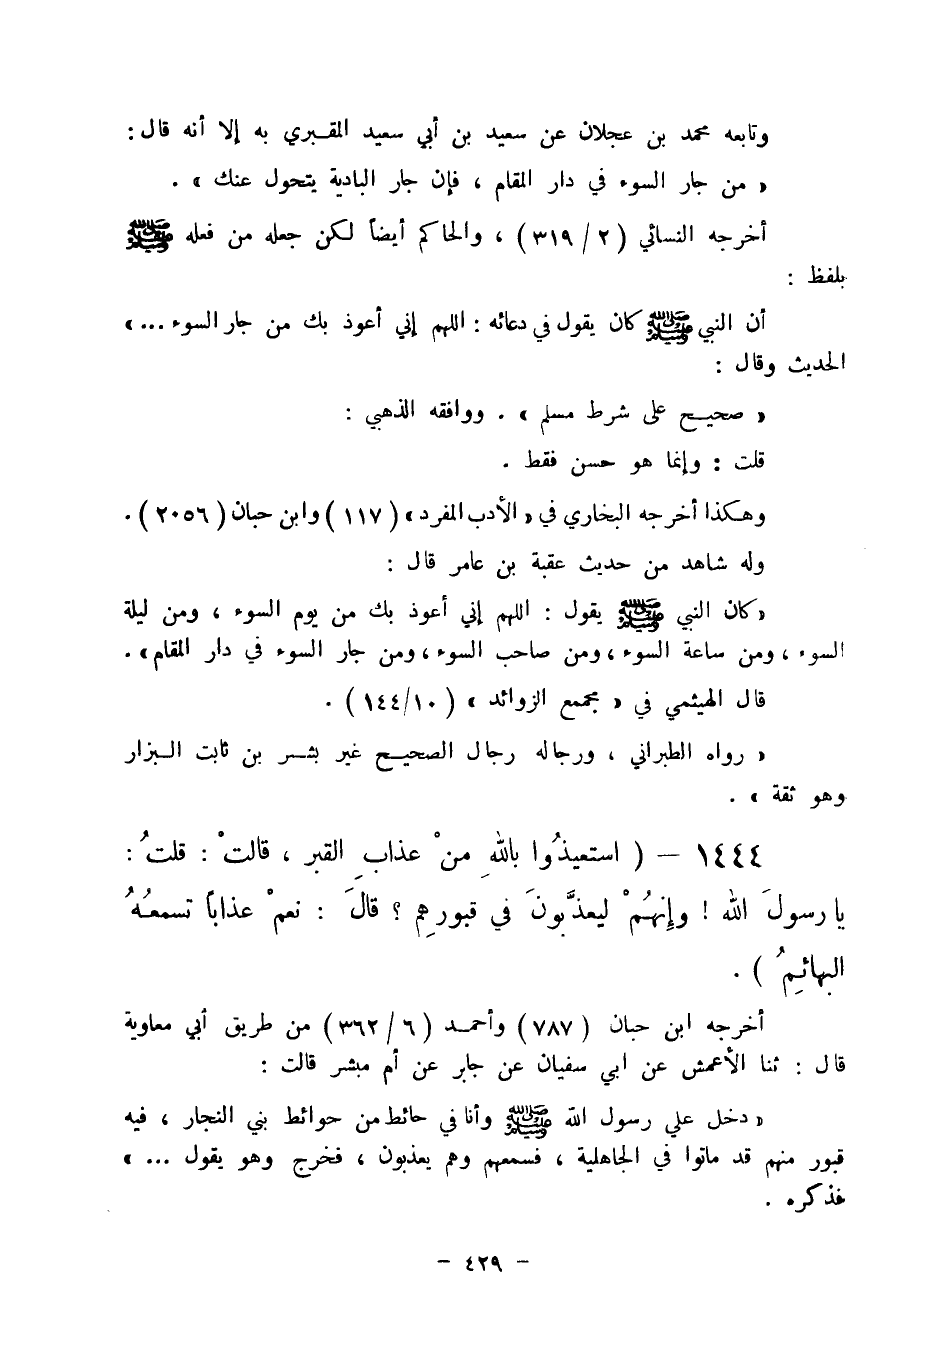 وتابعه محمد بن عجلان عن سعيد بن أبي سعيد المقبري به إلا أنه قال :
« من جار السوء في دار المقام ، فإن جار البادية يتحول عنك » .
أخرجه النسائي ( ٢ / ٣١٩ ) ، والحاكم أيضاً لكن جعله من فعله ﷺ
بلفظ :
أن النبي ﷺ كان يقول في دعائه : اللهم إني أعوذ بك من جار السوء ... »
الحديث وقال :
« صحيح على شرط مسلم » . ووافقه الذهبي :
قلت : وإنما هو حسن فقط .
وهكذا أخرجه البخاري في « الأدب المفرد » ( ١١٧ ) وابن حبان ( ٢٠٥٦ ) .
وله شاهد من حديث عقبة بن عامر قال :
« كان النبي ﷺ يقول : اللهم إني أعوذ بك من يوم السوء ، ومن ليلة
السوء ، ومن ساعة السوء ، ومن صاحب السوء ، ومن جار السوء في دار المقام » .
قال الهيثمي في « مجمع الزوائد » ( ١٠/١٤٤ ) .
« رواه الطبراني ، ورجاله رجال الصحيح غير بشر بن ثابت البزار
وهو ثقة » .
١٤٤٤ – ( استعيذُوا باللهِ منْ عذابِ القبرِ ، قالتْ : قلتُ :
يا رسولَ الله ! وإنهُمْ ليعذَّبونَ في قبورِهم ؟ قالَ : نعمْ عذاباً تسمعُهُ
البهائِمُ ) .
أخرجه ابن حبان ( ٧٨٧ ) وأحمد ( ٦ / ٣٦٢ ) من طريق أبي معاوية
قال : ثنا الأعمش عن ابي سفيان عن جابر عن أم مبشر قالت :
« دخل علي رسول الله ﷺ وأنا في حائط من حوائط بني النجار ، فيه
قبور منهم قد ماتوا في الجاهلية ، فسمعهم وهم يعذبون ، فخرج وهو يقول ... »
فذكره .
– ٤٢٩ –